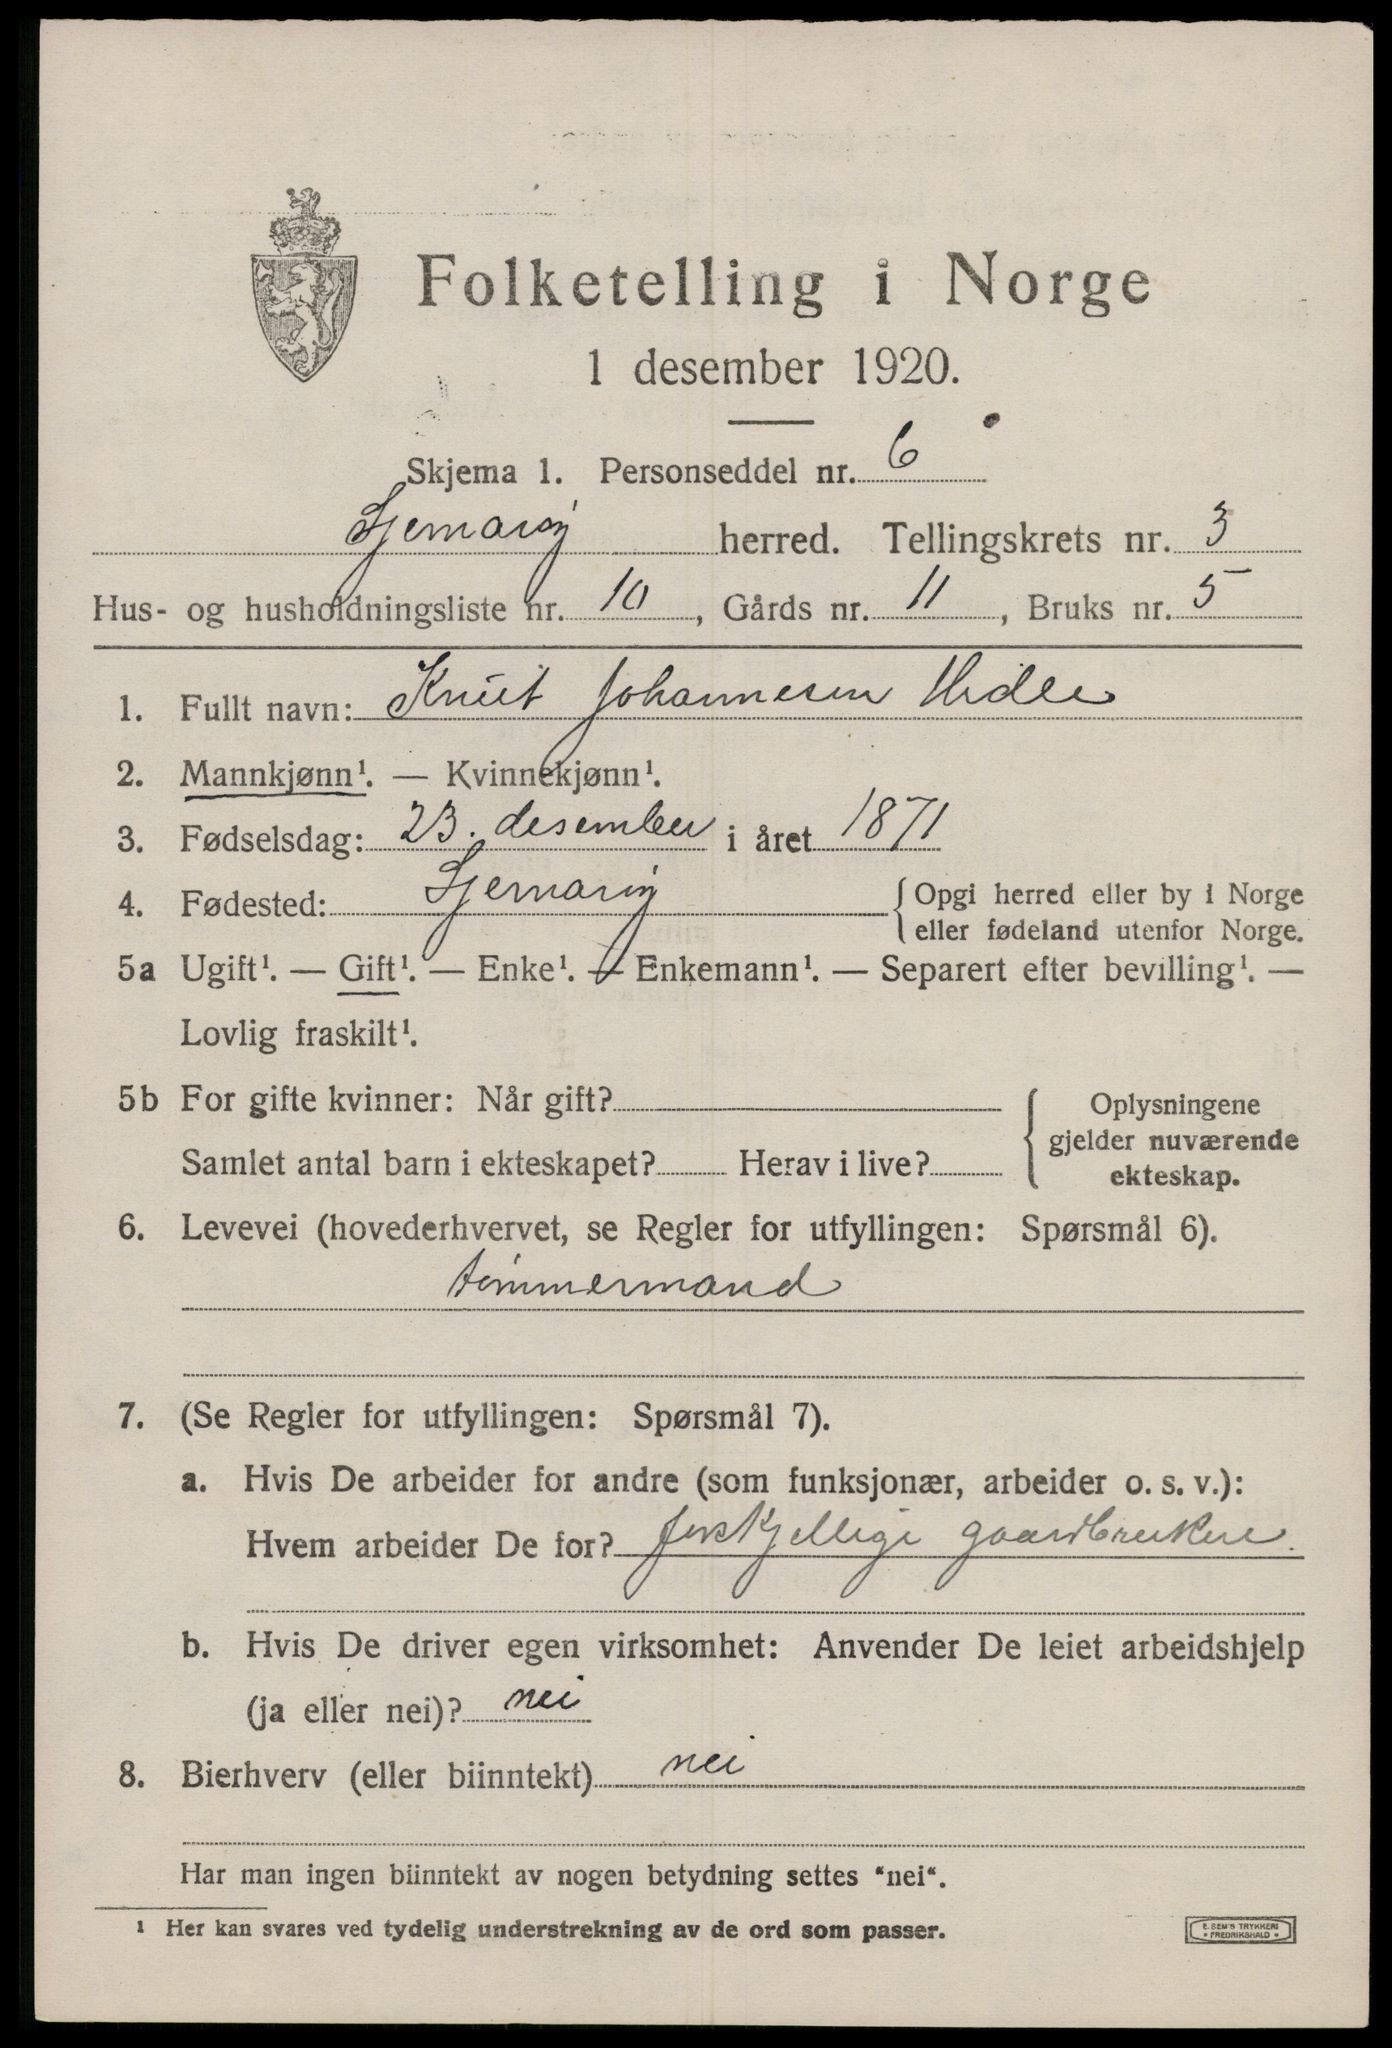 Folketelling i Norge
1 desember 1920.
Skjema 1. Personseddel nr. 6
Sjernarøy herred. Tellingskrets nr. 3
Hus- og husholdningsliste nr. 10, Gårds nr. 11, Bruks nr. 5
1. Fullt navn: Knut Johannesen Hidle
2. Mannkjønn¹. — Kvinnekjønn¹.
3. Fødselsdag: 23. desember i året 1871
4. Fødested: Sjernarøy { Opgi herred eller by i Norge
eller fødeland utenfor Norge.
5a Ugift¹. — Gift¹. — Enke¹. — Enkemann¹. — Separert efter bevilling¹. —
Lovlig fraskilt¹.
5b For gifte kvinner: Når gift?
Samlet antal barn i ekteskapet? Herav i live?
Oplysningene
gjelder nuværende
ekteskap.
6. Levevei (hovederhvervet, se Regler for utfyllingen: Spørsmål 6).
tømmermand
7. (Se Regler for utfyllingen: Spørsmål 7).
a. Hvis De arbeider for andre (som funksjonær, arbeider o. s. v.):
Hvem arbeider De for? forskjellige gaardbrukere.
b. Hvis De driver egen virksomhet: Anvender De leiet arbeidshjelp
(ja eller nei)? nei
8. Bierhverv (eller biinntekt) nei
Har man ingen biinntekt av nogen betydning settes "nei".
¹ Her kan svares ved tydelig understrekning av de ord som passer.
E. SEM'S TRYKKERI
• FREDRIKSHALD •